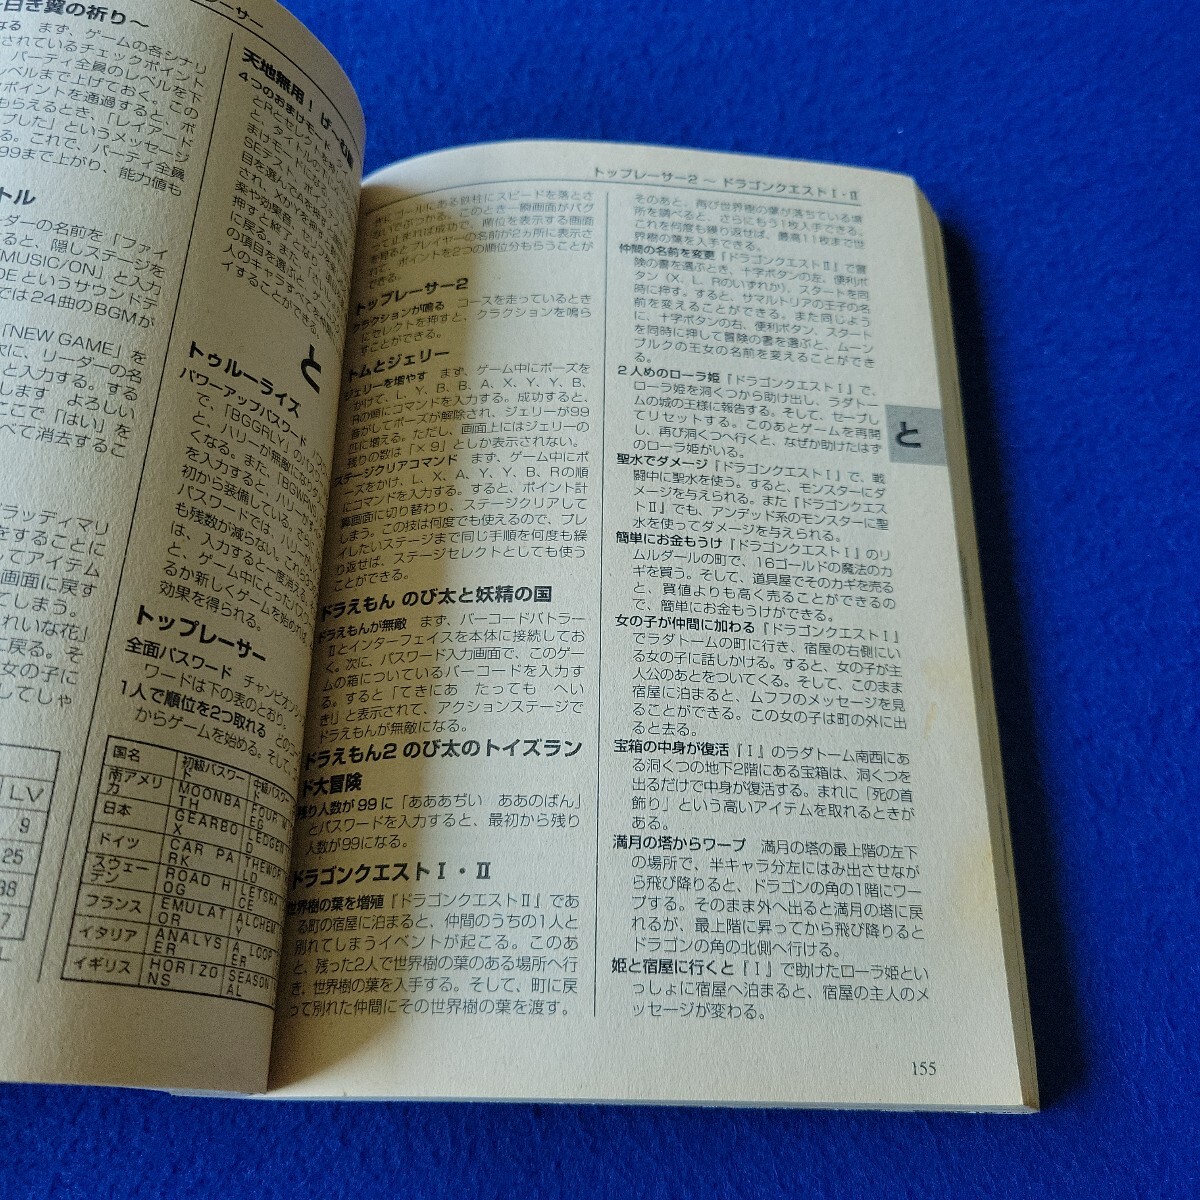 白き翼の祈り～
なる まず、ゲームの各シナリ
されているチェックポイント
パーティ全員のレベルを下
ベルまで上げておく。この
ポイントを通過すると、ボ
もらえるとき、「レイアード
プした」というメッセージ
る。これで、パーティ全員
99まで上がり、能力値も
トル
ーダーの名前を「ファイ
ると、隠しステージを
MUSIC/ON」と入力
DEというサウンドテ
では24曲のBGMが
「NEW GAME」を
次に、リーダーの名
と入力する。する
します よろしい
ここで「はい」を
べて消去するこ
ラッディマリ
をすることに
ってアイテム
画面に戻す
てしまう。
れいな花」
に戻る。そ
女の子に
してしゃ
LV
9
25
38
7
L
レーサー
天地無用！ げ～む編
4つのおまけモード
と
トゥルーライズ
パワーアップパスワード
で、「BGGRLY」の
と、ハリーが無敵に
くなる。また、「BGWPN
を入力すると、ハリーが
初から装備している。さら
も残数が減らない。これら
パスワードでは、ハリーが
は、入力すると一度消える
と、ゲーム中にとったパワ
るか新しくゲームを始めれば、
効果を得られる。
トップレーサー
全面パスワード チャンピオン
ワードは下の表のとおり。
1人で順位を2つ取れる
からゲームを始める。そして、
国名 初級パスワード 中級パスワード
南アメリカ MOONBATH
日本 GEARBOX
ドイツ CAR PARK
スウェーデン ROAD HOG
フランス EMULATOR
イタリア ANALYSER
イギリス HORIZONS SEASONAL
トップレーサー2 ～ ドラゴンクエストⅠ・Ⅱ
次にゴールにある敵社にスピードを落とさ
ないでぶつかる。このとき一瞬画面がバグ
って止まれば成功で、順位を表示する画面
を見るとプレイヤーの名前が2ヵ所に表示さ
れて、ポイントを2つの順位分もらうことが
できる。
トップレーサー2
クラクションが鳴る コースを走っているとき
にセレクトを押すと、クラクションを鳴ら
すことができる。
トムとジェリー
ジェリーを増やす まず、ゲーム中にポーズを
かけて、L、Y、B、B、A、X、Y、Y、B、
Rの順にコマンドを入力する。成功すると、
音がしてポーズが解除され、ジェリーが99
匹に増える。ただし、画面上にはジェリーの
残りの数は「×9」としか表示されない。
ステージクリアコマンド まず、ゲーム中にポ
ーズをかけ、L、X、A、Y、Y、B、Rの順
にコマンドを入力する。すると、ポイント計
算画面に切り替わり、ステージクリアして
しまう。この技は何度でも使えるので、プレ
イしたいステージまで同じ手順を何度も繰
り返せば、ステージセレクトとしても使う
ことができる。
ドラえもん のび太と妖精の国
ドラえもんが無敵 まず、バーコードバトラー
Ⅱとインターフェイスを本体に接続してお
く。次に、パスワード入力画面で、このゲー
ムの箱についているバーコードを入力す
る。すると「てきにあ たっても へい
き!」と表示されて、アクションステージで
ドラえもんが無敵になる。
ドラえもん2 のび太のトイズラン
ド大冒険
残り人数が99に 「あああぢい ああのばん」
とパスワードを入力すると、最初から残り
人数が99になる。
ドラゴンクエストⅠ・Ⅱ
世界樹の葉を増殖 『ドラゴンクエストⅡ』であ
る町の宿屋に泊まると、仲間のうちの1人と
別れてしまうイベントが起こる。このあ
と、残った2人で世界樹の葉のある場所へ行
き、世界樹の葉を入手する。そして、町に戻
って別れた仲間にその世界樹の葉を渡す。
そのあと、再び世界樹の葉が落ちている場
所を調べると、さらにもう1枚入手できる。
これを何度も繰り返せば、最高11枚まで世
界樹の葉を入手できる。
仲間の名前を変更 『ドラゴンクエストⅡ』で冒
険の書を選ぶとき、十字ボタンの左、便利ボ
タン（X、L、Rのいずれか）、スタートを同
時に押す。すると、サマルトリアの王子の名
前を変えることができる。また同じよう
に、十字ボタンの右、便利ボタン、スタート
を同時に押して冒険の書を選ぶと、ムーン
ブルクの王女の名前を変えることができ
る。
2人めのローラ姫 『ドラゴンクエストⅠ』で、
ローラ姫を洞くつから助け出し、ラダトー
ムの城の王様に報告する。そして、セーブし
てリセットする。このあとゲームを再開
し、再び洞くつへ行くと、なぜか助けたはず
のローラ姫がいる。
聖水でダメージ 『ドラゴンクエストⅠ』で、戦
闘中に聖水を使う。すると、モンスターにダ
メージを与えられる。また『ドラゴンクエス
トⅡ』でも、アンデッド系のモンスターに聖
水を使ってダメージを与えられる。
簡単にお金もうけ 『ドラゴンクエストⅠ』のリ
ムルダールの町で、16ゴールドの魔法のカ
ギを買う。そして、道具屋でそのカギを売る
と、買値よりも高く売ることができるの
で、簡単にお金もうけができる。
女の子が仲間に加わる 『ドラゴンクエストⅠ』
でラダトームの町に行き、宿屋の右側にい
る女の子に話しかける。すると、女の子が主
人公のあとをついてくる。そして、このまま
宿屋に泊まると、ムフフのメッセージを見
ることができる。この女の子は町の外に出
ると去る。
宝箱の中身が復活 『Ⅰ』のラダトーム南西にあ
る洞くつの地下2階にある宝箱は、洞くつを
出るだけで中身が復活する。まれに「死の首
飾り」という高いアイテムを取れるときが
ある。
満月の塔からワープ 満月の塔の最上階の左下
の場所で、半キャラ分左にはみ出させなが
ら飛び降りると、ドラゴンの角の1階にワー
プする。そのまま外へ出ると満月の塔に戻
れるが、最上階に昇ってから飛び降りると
ドラゴンの角の北側へ行ける。
姫と宿屋に行くと 『Ⅰ』で助けたローラ姫とい
っしょに宿屋へ泊まると、宿屋の主人のメ
ッセージが変わる。
と
155